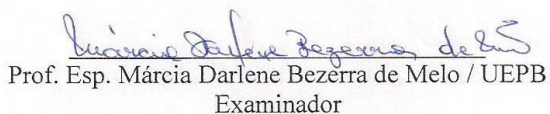 Márcia Darlene Bezerra de Melo
Prof. Esp. Márcia Darlene Bezerra de Melo / UEPB
Examinador